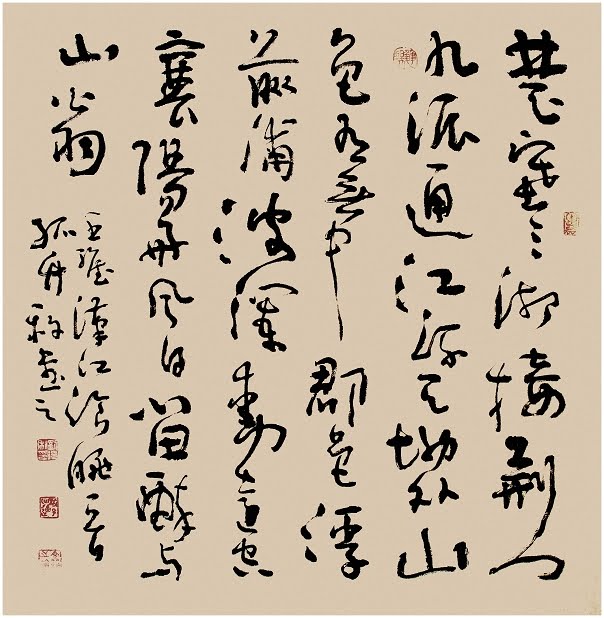 楚塞三湘接荊門
九派通江流天地外山
色有無中郡邑浮
前浦波瀾動遠空
襄陽好風日留醉與
山翁
王維漢江臨眺
孤舟書之